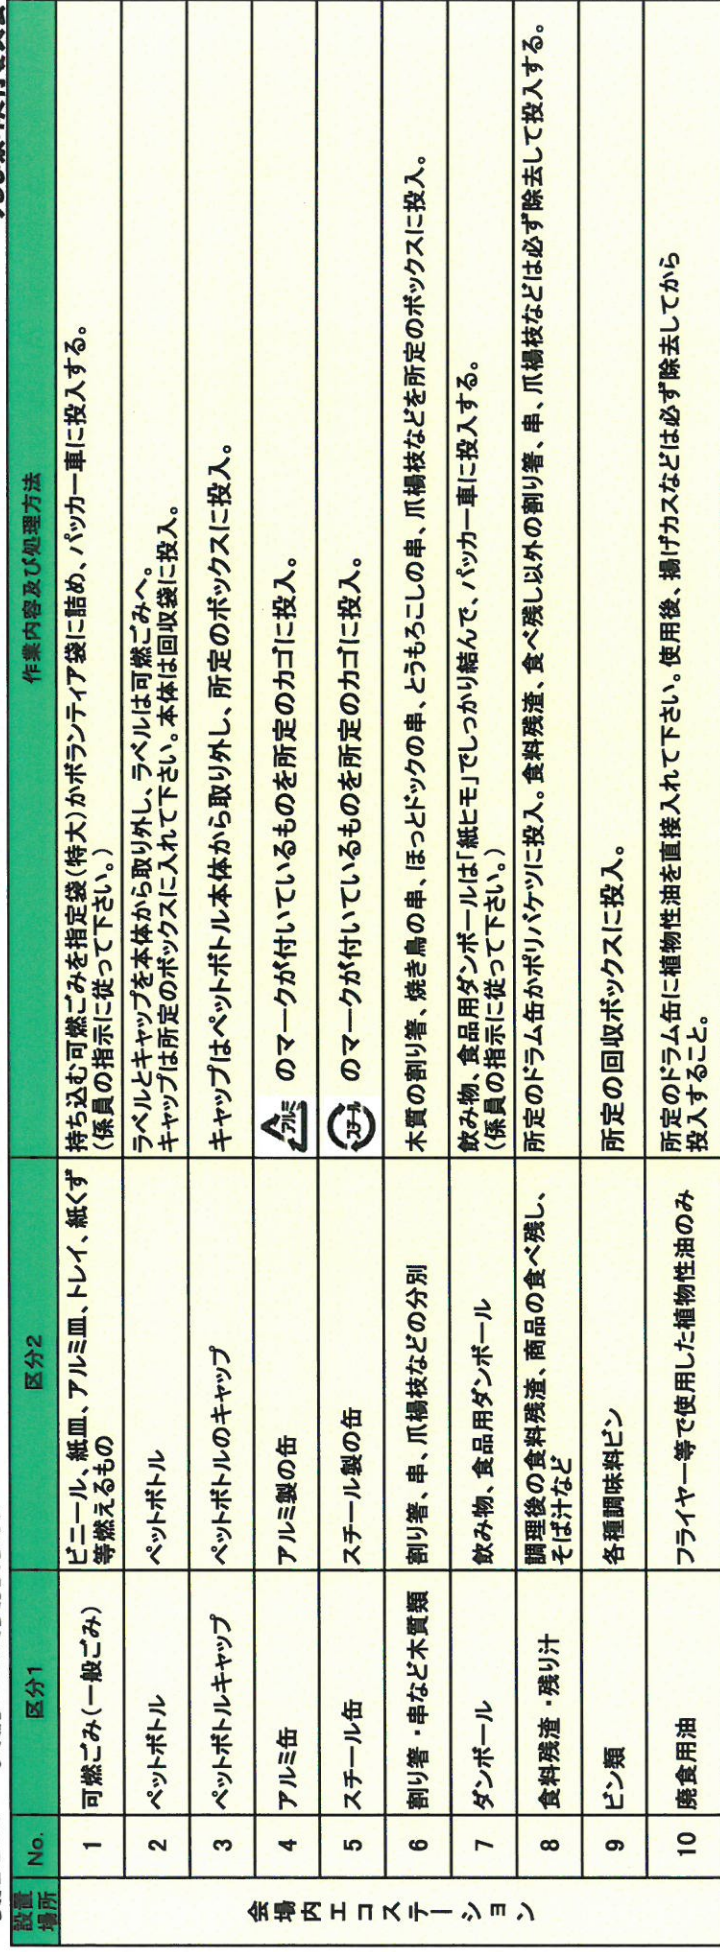 設置場所 No. 区分1 区分2 作業内容及び処理方法
会場内エコステーション
1 可燃ごみ(一般ごみ) ビニール、紙皿、アルミ皿、トレイ、紙くず等燃えるもの 持ち込む可燃ごみを指定袋(特大)かボランティア袋に詰め、パッカー車に投入する。
(係員の指示に従って下さい。)
2 ペットボトル ペットボトル ラベルとキャップを本体から取り外し、ラベルは可燃ごみへ。
キャップは所定のボックスに入れて下さい。本体は回収袋に投入。
3 ペットボトルキャップ ペットボトルのキャップ キャップはペットボトル本体から取り外し、所定のボックスに投入。
4 アルミ缶 アルミ製の缶 アルミ のマークが付いているものを所定のカゴに投入。
5 スチール缶 スチール製の缶 スチール のマークが付いているものを所定のカゴに投入。
6 割り箸・串など木質類 割り箸、串、爪楊枝などの分別 木質の割り箸、焼き鳥の串、ほっとドックの串、とうもろこしの串、爪楊枝などを所定のボックスに投入。
7 ダンボール 飲み物、食品用ダンボール 飲み物、食品用ダンボールは「紙ヒモ」でしっかり結んで、パッカー車に投入する。
(係員の指示に従って下さい。)
8 食料残渣・残り汁 調理後の食料残渣、商品の食べ残し、そば汁など 所定のドラム缶かポリバケツに投入。食料残渣、食べ残し以外の割り箸、串、爪楊枝などは必ず除去して投入する。
9 ビン類 各種調味料ビン 所定の回収ボックスに投入。
10 廃食用油 フライヤー等で使用した植物性油のみ 所定のドラム缶に植物性油を直接入れて下さい。使用後、揚げカスなどは必ず除去してから
投入すること。